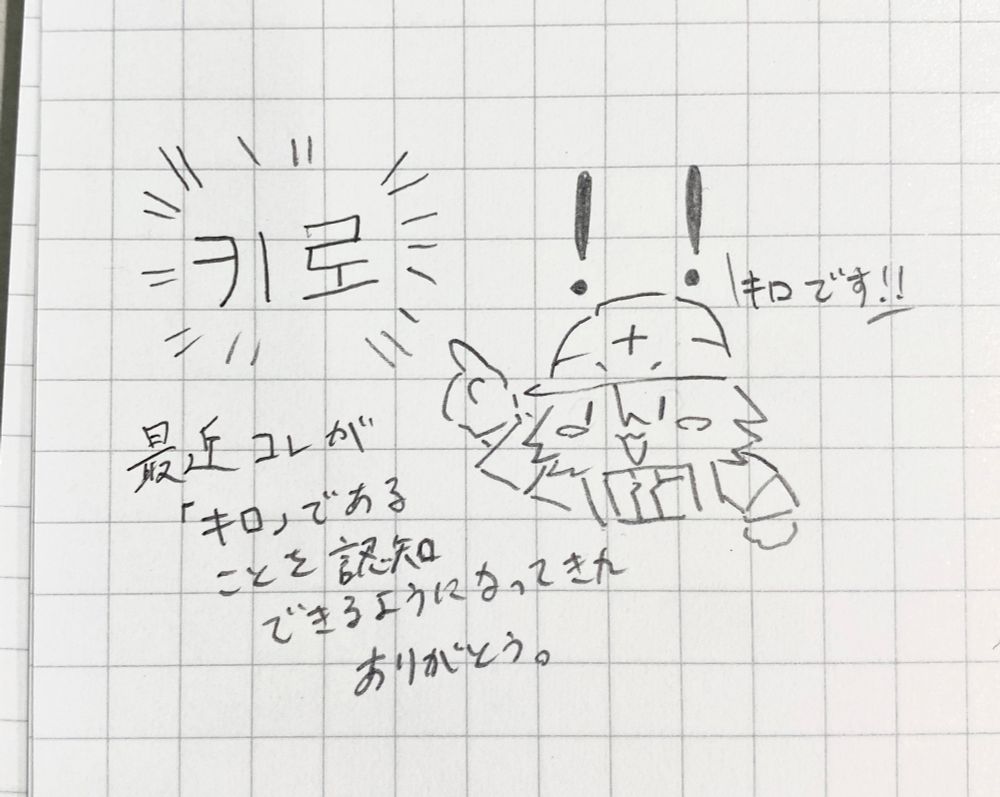 키로
!!
キロです!!
最近コレが
「キロ」である
ことを認知
できるようになってきた
ありがとう。